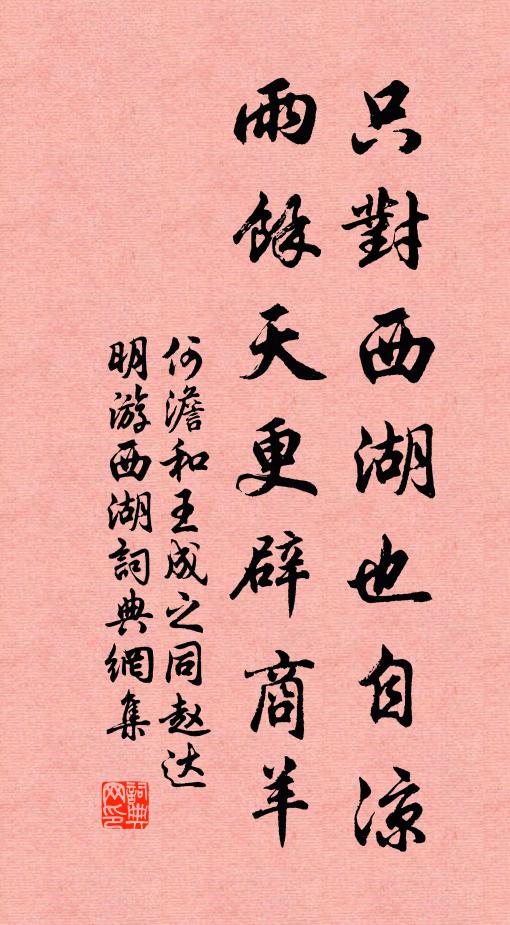 只對西湖也自涼
雨餘天更辟商羊
何澹和王成之同赵达
明游西湖詞典網集
詞典
网印